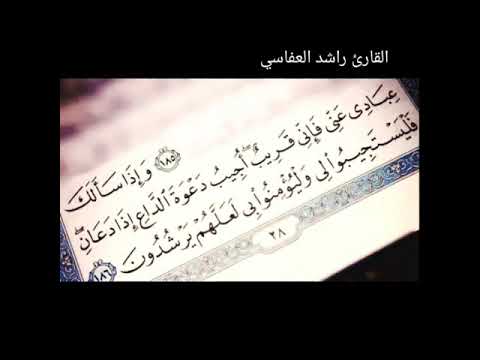 القارئ راشد العفاسي
١٨٥ وَإِذَا سَأَلَكَ
عِبَادِى عَنِّى فَإِنِّى قَرِيبٌ أُجِيبُ دَعْوَةَ ٱلدَّاعِ إِذَا دَعَانِ
فَلْيَسْتَجِيبُوا۟ لِى وَلْيُؤْمِنُوا۟ بِى لَعَلَّهُمْ يَرْشُدُونَ ١٨٦
٢٨